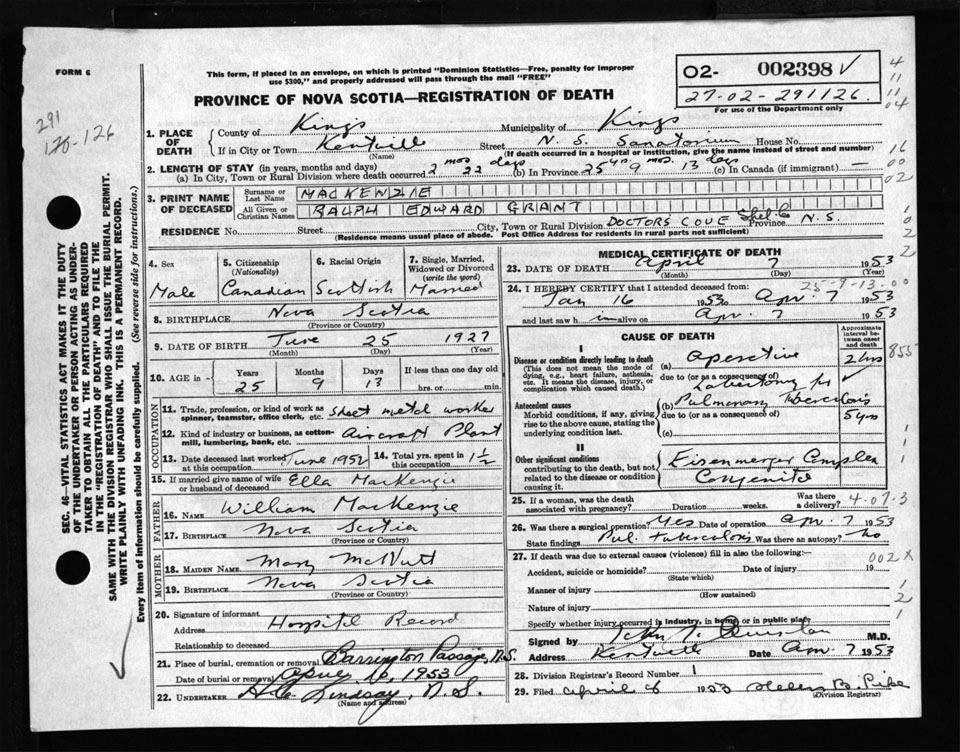 FORM 6
This form, if placed in an envelope, on which is printed "Dominion Statistics—Free, penalty for improper
use $300," and properly addressed will pass through the mail "FREE"
PROVINCE OF NOVA SCOTIA—REGISTRATION OF DEATH
02- 002398 ✓
27-02-291126.
For use of the Department only
4
11
11
04
16
00
02
1
0
2
2
291
126
1. PLACE OF DEATH { County of Kings Municipality of Kings
If in City or Town Kentville Street N. S. Sanatorium House No.
(Name) (If death occurred in a hospital or institution, give the name instead of street and number)
2. LENGTH OF STAY (in years, months and days)
(a) In City, Town or Rural Division where death occurred 2 mos 22 days (b) In Province 25 yrs 9 mos. 13 days (c) In Canada (if immigrant)
3. PRINT NAME OF DECEASED { Surname or Last Name MACKENZIE
All Given or Christian Names RALPH EDWARD GRANT
RESIDENCE No. Street City, Town or Rural Division DOCTORS COVE Shel. Co Province N. S.
(Residence means usual place of abode. Post Office Address for residents in rural parts not sufficient)
SEC. 46—VITAL STATISTICS ACT MAKES IT THE DUTY
OF THE UNDERTAKER OR PERSON ACTING AS UNDER-
TAKER TO OBTAIN ALL THE PARTICULARS REQUIRED
IN THE "REGISTRATION OF DEATH" AND TO FILE THE
SAME WITH THE DIVISION REGISTRAR WHO SHALL ISSUE THE BURIAL PERMIT.
WRITE PLAINLY WITH UNFADING INK. THIS IS A PERMANENT RECORD.
Every item of information should be carefully supplied. (See reverse side for instructions.)
4. Sex Male
5. Citizenship (Nationality) Canadian
6. Racial Origin Scottish
7. Single, Married, Widowed or Divorced (write the word) Married
8. BIRTHPLACE Nova Scotia
(Province or Country)
9. DATE OF BIRTH June 25 1927
(Month) (Day) (Year)
10. AGE in - Years 25 Months 9 Days 13 If less than one day old hrs. or min.
OCCUPATION
11. Trade, profession, or kind of work as spinner, teamster, office clerk, etc. sheet metal worker
12. Kind of industry or business, as cotton-mill, lumbering, bank, etc. Aircraft Plant
13. Date deceased last worked at this occupation June 1952 14. Total yrs. spent in this occupation 1 1/2
15. If married give name of wife or husband of deceased Ella MacKenzie
FATHER
16. NAME William MacKenzie
17. BIRTHPLACE Nova Scotia
(Province or Country)
MOTHER
18. MAIDEN NAME Mary McNutt
19. BIRTHPLACE Nova Scotia
(Province or Country)
20. Signature of informant Hospital Record
Address
Relationship to deceased
21. Place of burial, cremation or removal Barrington Passage, N.S.
Date of burial or removal April 10, 1953
22. UNDERTAKER Lindsay, N. S.
(Name and address)
MEDICAL CERTIFICATE OF DEATH
23. DATE OF DEATH April 7 1953
(Month) (Day) (Year)
25-9-13-00
24. I HEREBY CERTIFY that I attended deceased from:
Jan 16 1953 to Apr. 7 1953
and last saw h im alive on Apr. 7 1953
CAUSE OF DEATH
Approximate interval between onset and death
I
Disease or condition directly leading to death
(This does not mean the mode of dying, e.g., heart failure, asthenia, etc. It means the disease, injury, or complication which caused death.)
(a) operative 2 hrs
855
due to (or as a consequence of)
Lobectomy for
Antecedent causes
Morbid conditions, if any, giving rise to the above cause, stating the underlying condition last.
(b) Pulmonary Tuberculosis 5 yrs
due to (or as a consequence of)
(c)
II
Other significant conditions
contributing to the death, but not related to the disease or condition causing it.
Eisenmenger Complex
Congenital
25. If a woman, was the death associated with pregnancy? Duration weeks. Was there delivery?
4-07-3
26. Was there a surgical operation? Yes Date of operation Apr. 7 1953
State findings Pul. tuberculosis Was there an autopsy? No
27. If death was due to external causes (violence) fill in also the following:—
002 X
Accident, suicide or homicide? Date of injury 19
(State which)
Manner of injury
(How sustained)
Nature of injury
Specify whether injury occurred in industry, in home, or in public place
Signed by John M.D.
Address Kentville Date Apr. 7 1953
28. Division Registrar's Record Number 1
29. Filed April 8 1953 Helen B. Pike
(Division Registrar)